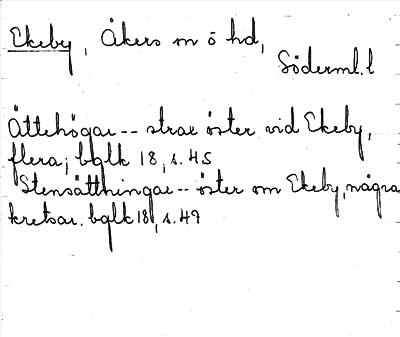 Ekeby, Åkers m ö hd,
Söderml. l
Ättehögar -- strax öster vid Ekeby,
flera; bqlk 18, s. 45
Stensättningar -- öster om Ekeby, några
kretsar. bqlk 18, s. 49